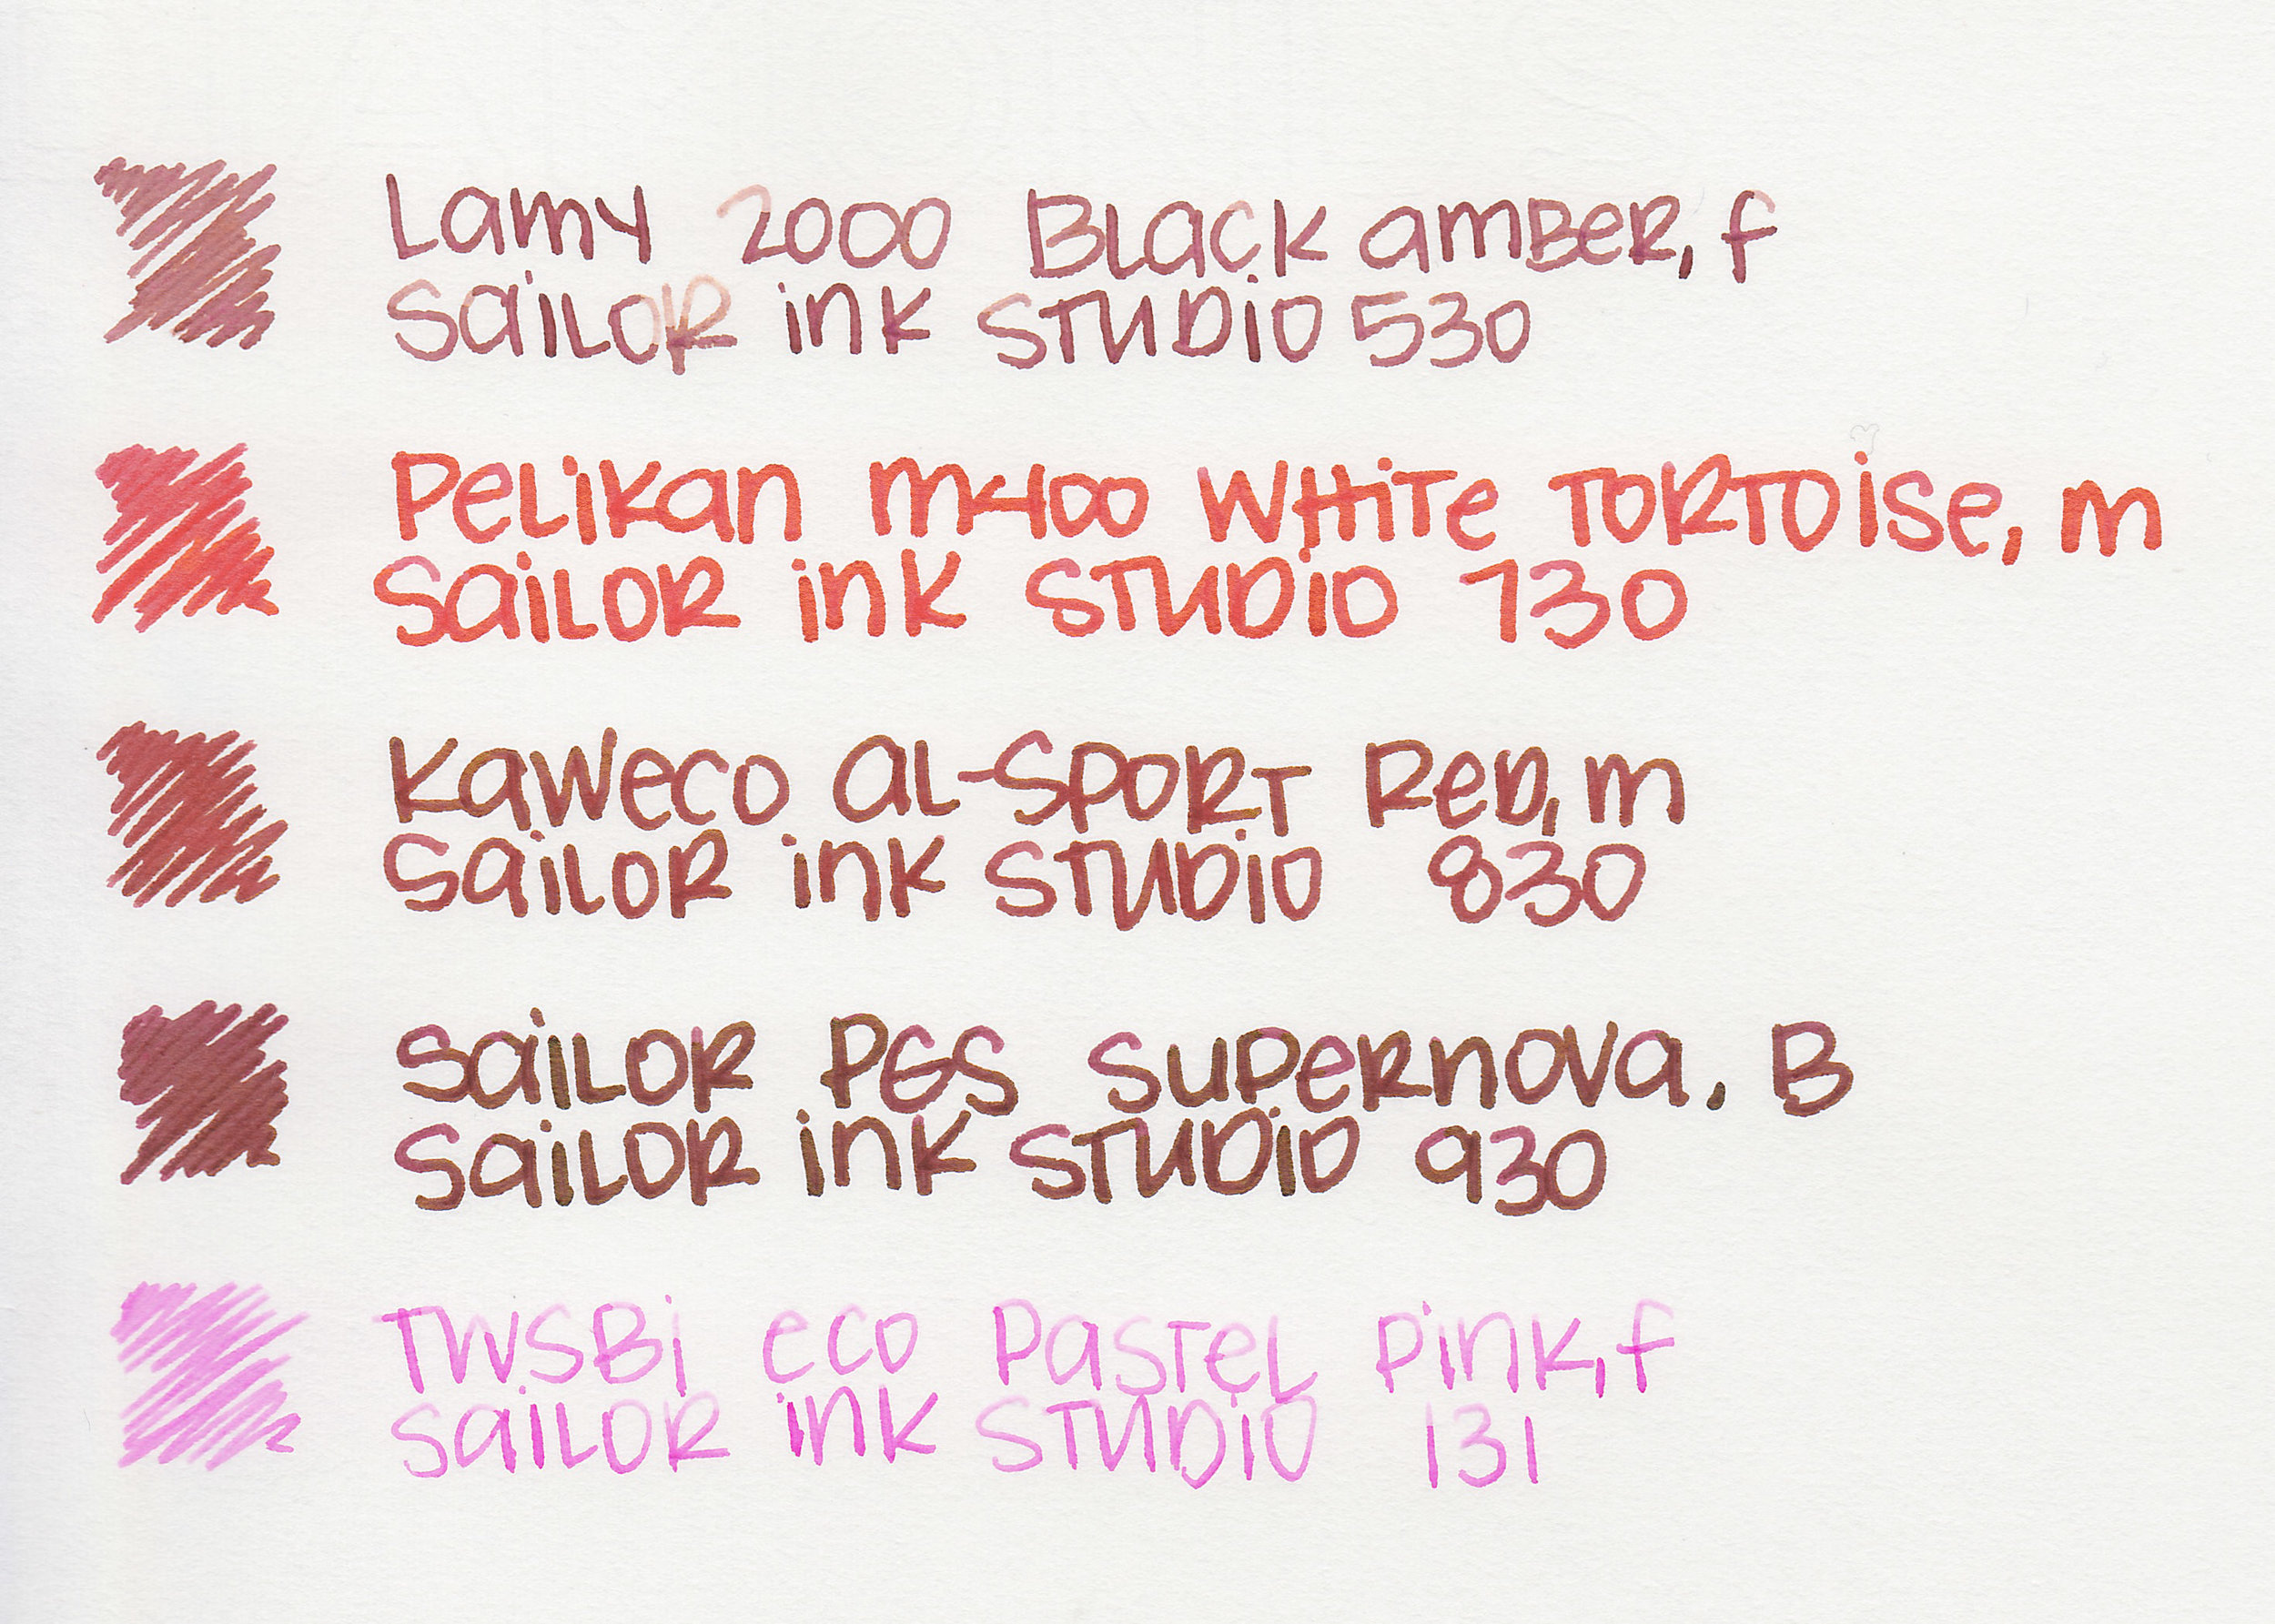 Lamy 2000 Black amber, f
Sailor ink Studio 530
Pelikan m400 White Tortoise, m
Sailor ink Studio 730
Kaweco al-Sport Red, m
Sailor ink Studio 830
Sailor PGS Supernova, B
Sailor ink Studio 930
TWSBi eco Pastel Pink, f
Sailor ink Studio 131